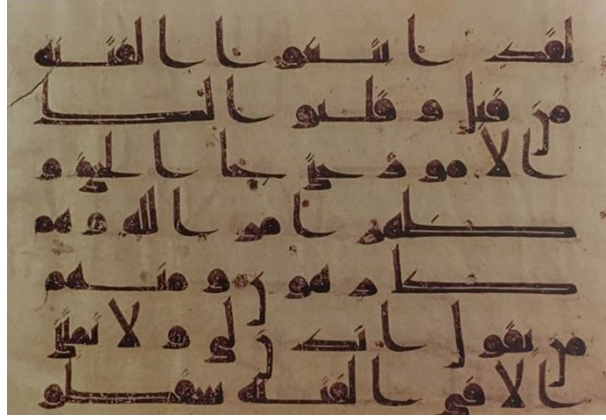 لقد ابتغوا الفتنة
من قبل وقلبوا لك
الامور حتى جا الحق و
ظهر امر الله وهم
كرهون ومنهم
من يقول ايذن لي ولا تفتني
الا في الفتنة سقطوا